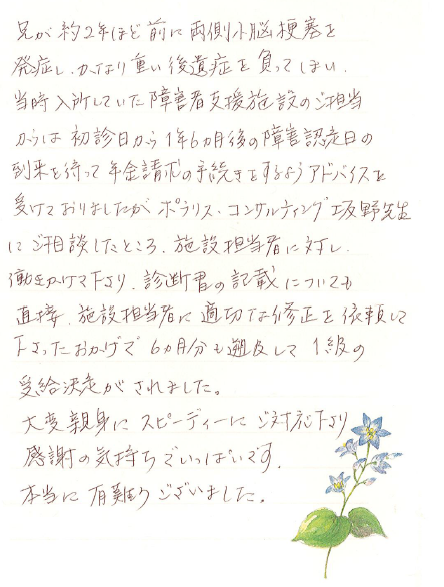 兄が約2年ほど前に両側小脳梗塞を
発症し、かなり重い後遺症を負ってしまい、
当時入所していた障害者支援施設のご担当
からは初診日から1年6カ月後の障害認定日の
到来を待って年金請求の手続きをするようアドバイスを
受けておりましたがポラリス・コンサルティング坂野先生
にご相談したところ、施設担当者に対し、
働きかけて下さり、診断書の記載についても
直接、施設担当者に適切な修正を依頼して
下さったおかげで6カ月分も遡及して1級の
受給決定がされました。
大変親身にスピーディーにご対応下さり
感謝の気持ちでいっぱいです。
本当に有難うございました。